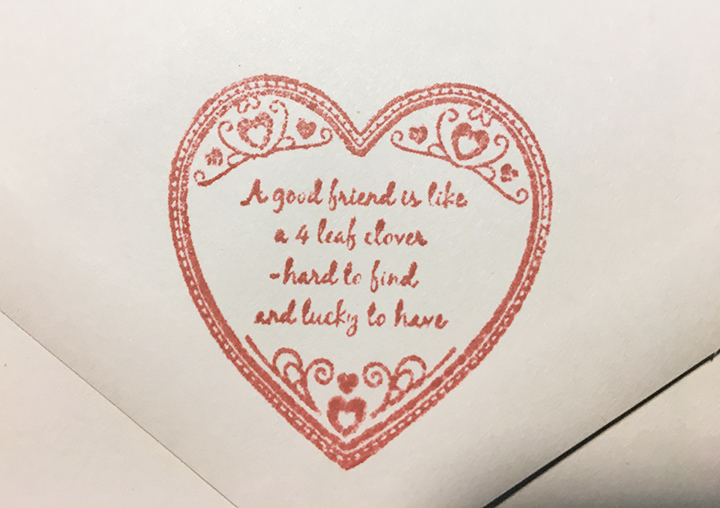 A good friend is like
a 4 leaf clover
-hard to find
and lucky to have